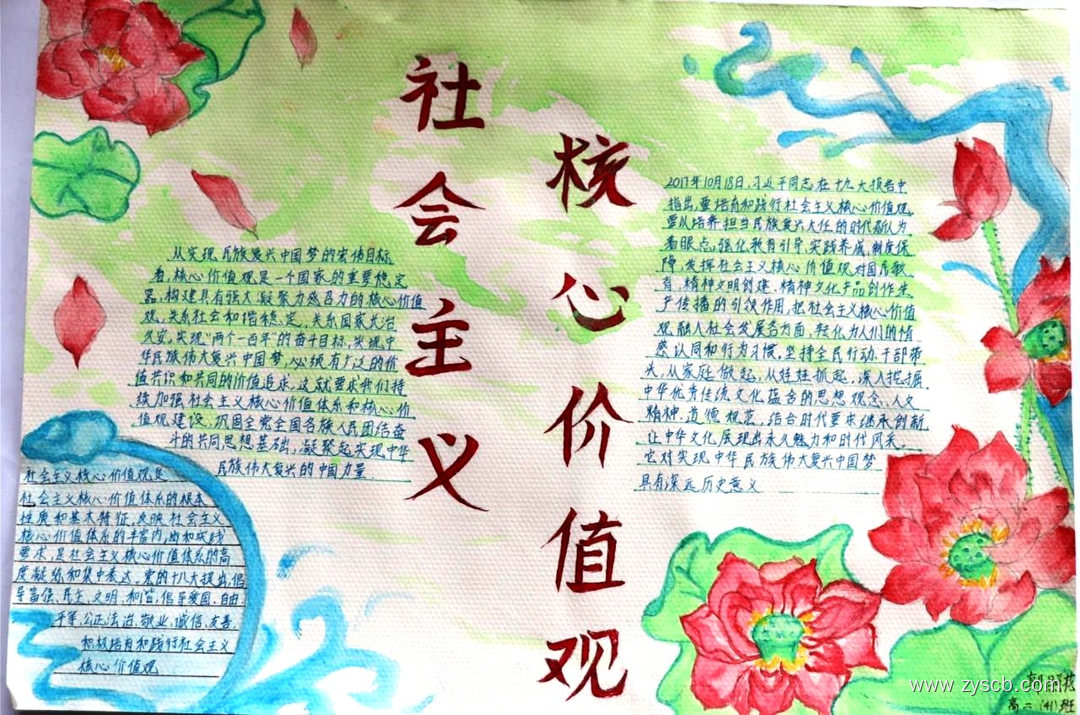 社会主义
核心价值观
从实现民族复兴中国梦的宏伟目标
看,核心价值观是一个国家的重要稳定
器,构建具有强大凝聚力感召力的核心价值
观,关系社会和谐稳定,关系国家长治
久安,实现"两个一百年"的奋斗目标,实现中
华民族伟大复兴中国梦,必须有广泛的价
值共识和共同的价值追求,这就要求我们持
续加强社会主义核心价值体系和核心价
值观建设,巩固全党全国各族人民团结奋
斗的共同思想基础,凝聚起实现中华
民族伟大复兴的中国力量.
社会主义核心价值观是
社会主义核心价值体系的根本
性质和基本特征,反映社会主义
核心价值体系的丰富内涵和实践
要求,是社会主义核心价值体系的高
度凝练和集中表达,党的十八大提出,倡
导富强、民主、文明、和谐,倡导爱国、自由、
平等、公正、法治、敬业、诚信、友善,
积极培育和践行社会主义
核心价值观
2017年10月18日,习近平同志在十九大报告中
指出,要培育和践行社会主义核心价值观,
要以培养担当民族复兴大任的时代新人为
着眼点,强化教育引导,实践养成,制度保
障,发挥社会主义核心价值观对国民教
育,精神文明创建,精神文化产品创作生
产传播的引领作用,把社会主义核心价值
观融入社会发展各方面,转化为人们的情
感认同和行为习惯,坚持全民行动,干部带
头,从家庭做起,从娃娃抓起,深入挖掘
中华优秀传统文化蕴含的思想观念,人文
精神,道德规范,结合时代要求继承创新
让中华文化展现出永久魅力和时代风采,
它对实现中华民族伟大复兴中国梦
具有深远历史意义
www.zyscb.com
高二(41)班